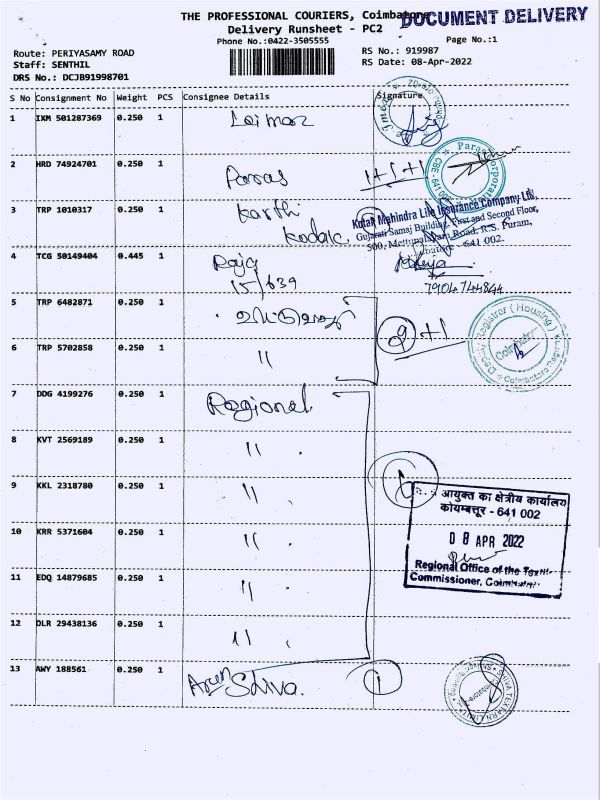 THE PROFESSIONAL COURIERS, Coimbatore
DOCUMENT DELIVERY
Delivery Runsheet - PC2
Phone No.:0422-3505555
Page No.:1
Route: PERIYASAMY ROAD
RS No.: 919987
Staff: SENTHIL
RS Date: 08-Apr-2022
DRS No.: DCJB91998701
S No Consignment No Weight PCS Consignee Details Signature
1 IXM 501287369 0.250 1
2 HRD 74924701 0.250 1 Paras 1+1+1
3 TRP 1010317 0.250 1 Karthi
Kodak
Kotak Mahindra Life Insurance Company Ltd,
Gujarati Samaj Building, First and Second Floor,
500, Mettupalayam Road, R.S. Puram,
Coimbatore - 641 002.
4 TCG 50149404 0.445 1 Raja
15/639
7904744844
5 TRP 6482871 0.250 1
2+1
6 TRP 5702858 0.250 1 "
Deputy Registrar (Housing)
Coimbatore
7 DDG 4199276 0.250 1 Regional
8 KVT 2569189 0.250 1 "
9 KKL 2318780 0.250 1 "
6
आयुक्त का क्षेत्रीय कार्यालय
कोयम्बत्तूर - 641 002
10 KRR 5371604 0.250 1 "
08 APR 2022
11 EDQ 14879685 0.250 1 "
Regional Office of the Textile
Commissioner, Coimbatore
12 DLR 29438136 0.250 1 "
13 AWY 188561 0.250 1 Shiva 1
SHIVA TEXYARN LIMITED